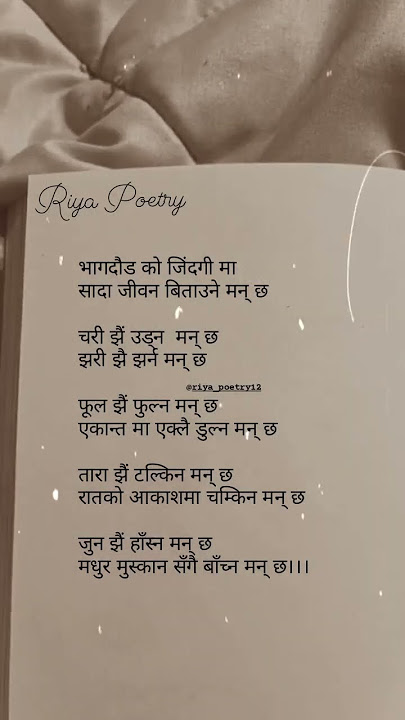 Riya Poetry
भागदौड को जिंदगी मा
सादा जीवन बिताउने मन् छ
चरी झैं उड्न मन् छ
झरी झै झर्न मन् छ
@riya_poetry12
फूल झैं फुल्न मन् छ
एकान्त मा एक्लै डुल्न मन् छ
तारा झैं टल्किन मन् छ
रातको आकाशमा चम्किन मन् छ
जुन झैं हाँस्न मन् छ
मधुर मुस्कान सँगै बाँच्न मन् छ।।।